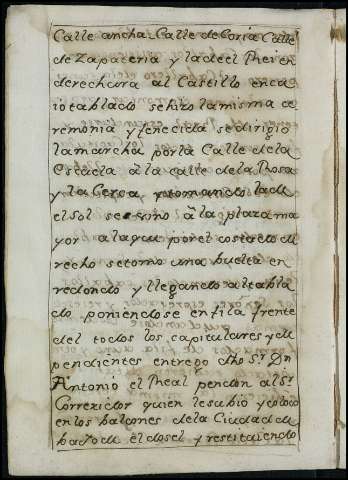 Calle ancha Calle de Coria Calle
de Zapateria y la del Rei en
derechura al Castillo en cu
io tablado se hizo la misma ce
remonia y fenecida se dirigio
la marcha por la Calle de la
Escala à la calle de la Rosa
y la Cerca y tomando la de
el Sol se vino à la plaza ma
yor a la que por el costado de
recho se torno una buelta en
redondo y llegando al tabla
do poniendose en fila frente
del todos los capitulares y de
pendientes entrego dho Sr. Dn
Antonio el Rheal pendon al Sr.
Correxidor quien le subio y coloco
en los balcones de la Ciudad de
baxo de el dosel y restituiendo